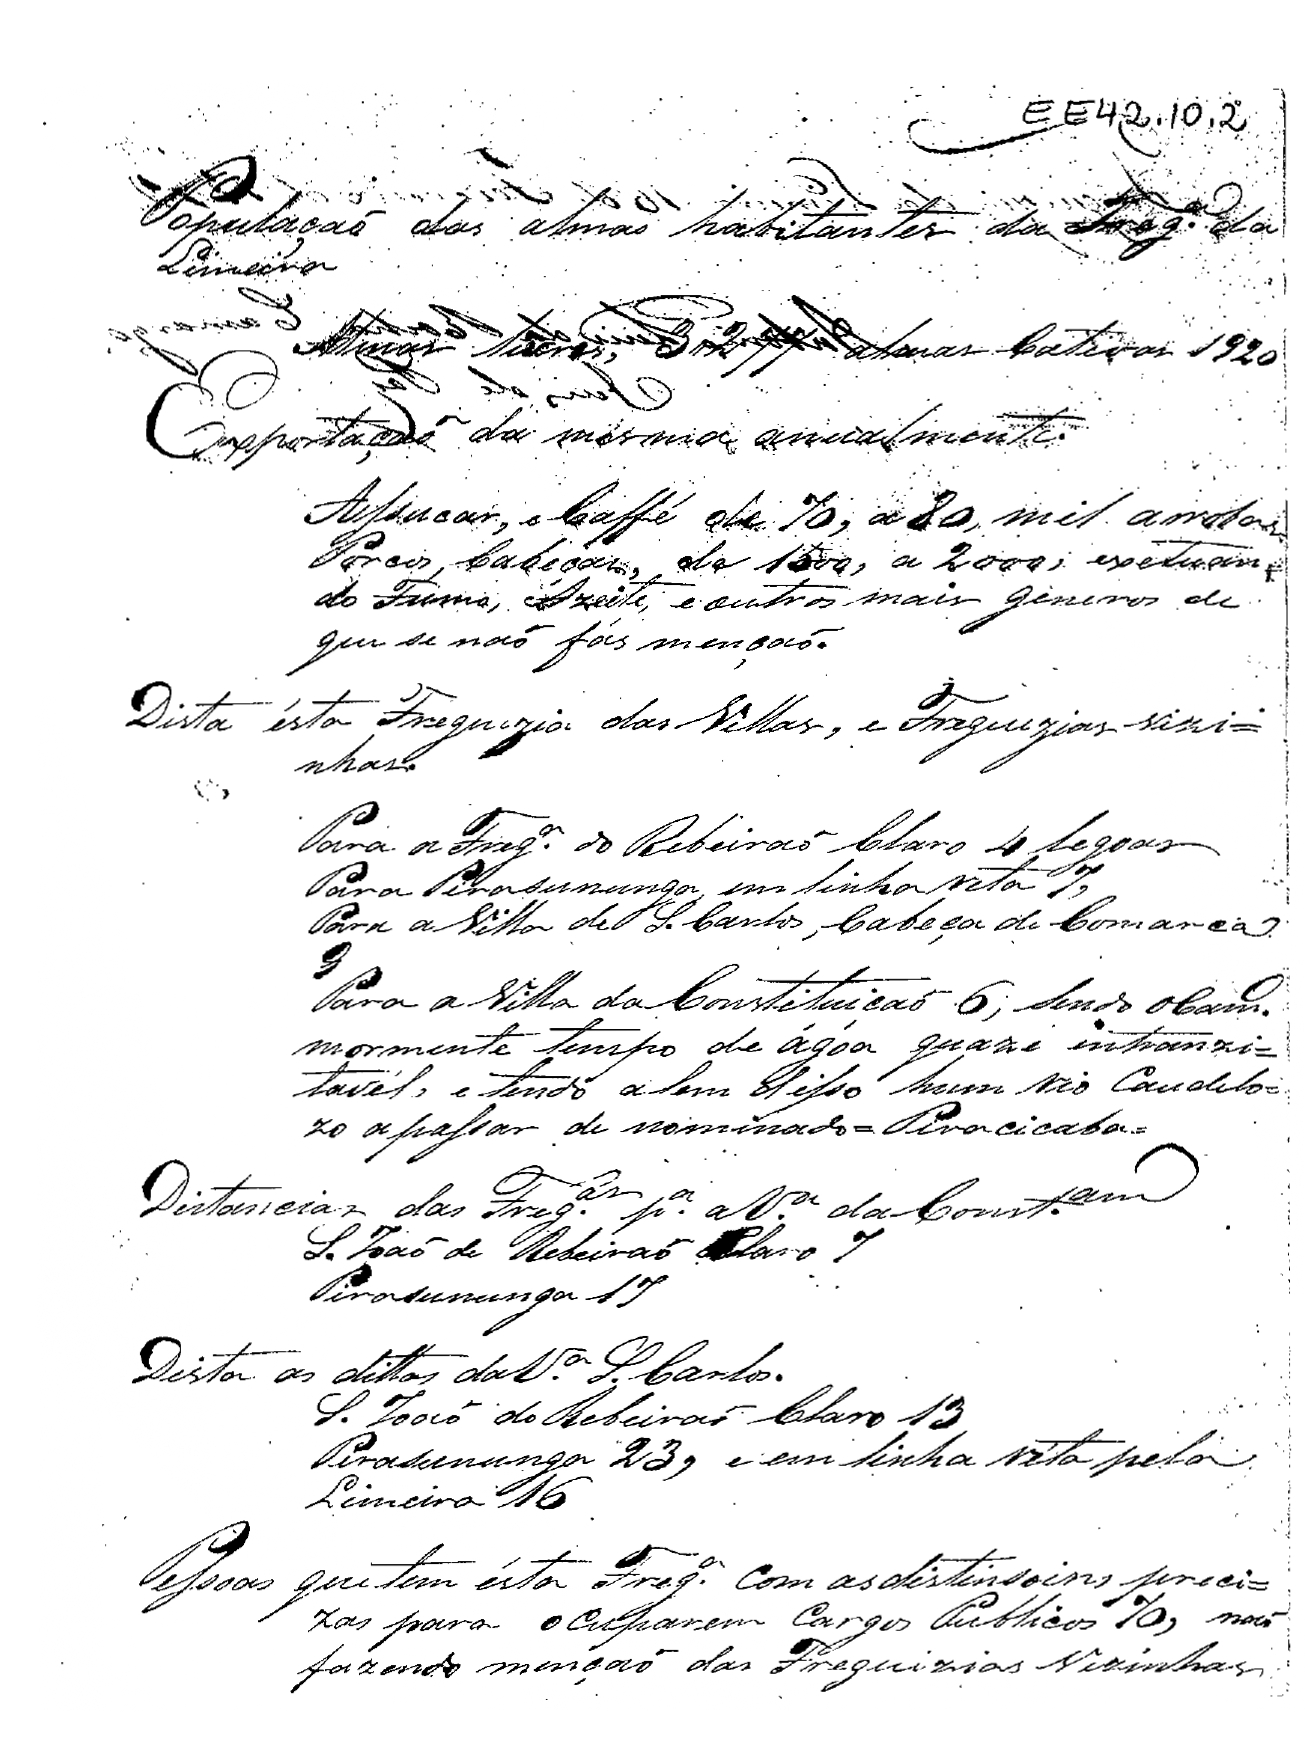 EE42.10.2
Populaçaõ das almas habitantes da Freg.ª da
Limeira
Almas livres, 3277 almas Cativas 1920
Exportaçaõ da mesma anualmente.
Assucar, e Caffé de 70, a 80, mil arrobas
Porcos, Cabeças, de 1500, a 2000, exetuan,
do Fumo, Azeite, e outros mais generos de
que se naõ fás mençaõ.
Dista ésta Freguezia das Villas, e Freguezias vizi=
nhas.
Para a Freg.ª do Rebeiraõ Claro 4 legoas
Para Pirasununga em linha reta 7,
Para a Villa de S. Carlos, Cabeça de Comarca
9
Para a Villa da Constituicaõ 6, sendo o Cam.
mormente tempo de ágóa quaze intranzi=
tavél, e tendo alem disso hum rio Caudelo=
zo apassar de nominado = Piracicaba =
Distancias das Freg.ªs p.ª a V.ª da Const.am
S. Joaõ do Rebeiraõ Claro 7
Pirasununga 17
Dista as dittas da V.ª S. Carlos.
S. Joaõ do Rebeiraõ Claro 13
Pirasununga 23, e em linha réta pela
Limeira 16
Pessoas que tem ésta Freg.ª Com as distinsoins preci=
zas para ocuparem Cargos Publicos 70, naõ
fazendo mençaõ das Freguizias Vizinhas